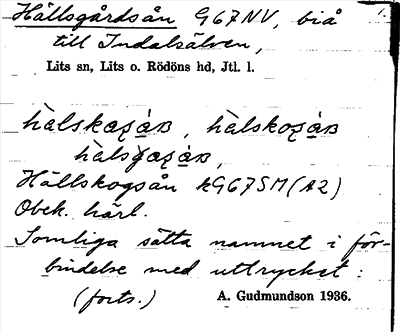 Hällsgårdsån G67NV, biå 1.
till Indalsälven,
Lits sn, Lits o. Rödöns hd, Jtl. l.
Hällskogsån kG67SM(A2)
Obek. härl.
Somliga sätta namnet i för-
bindelse med uttrycket:
(forts.) A. Gudmundson 1936.